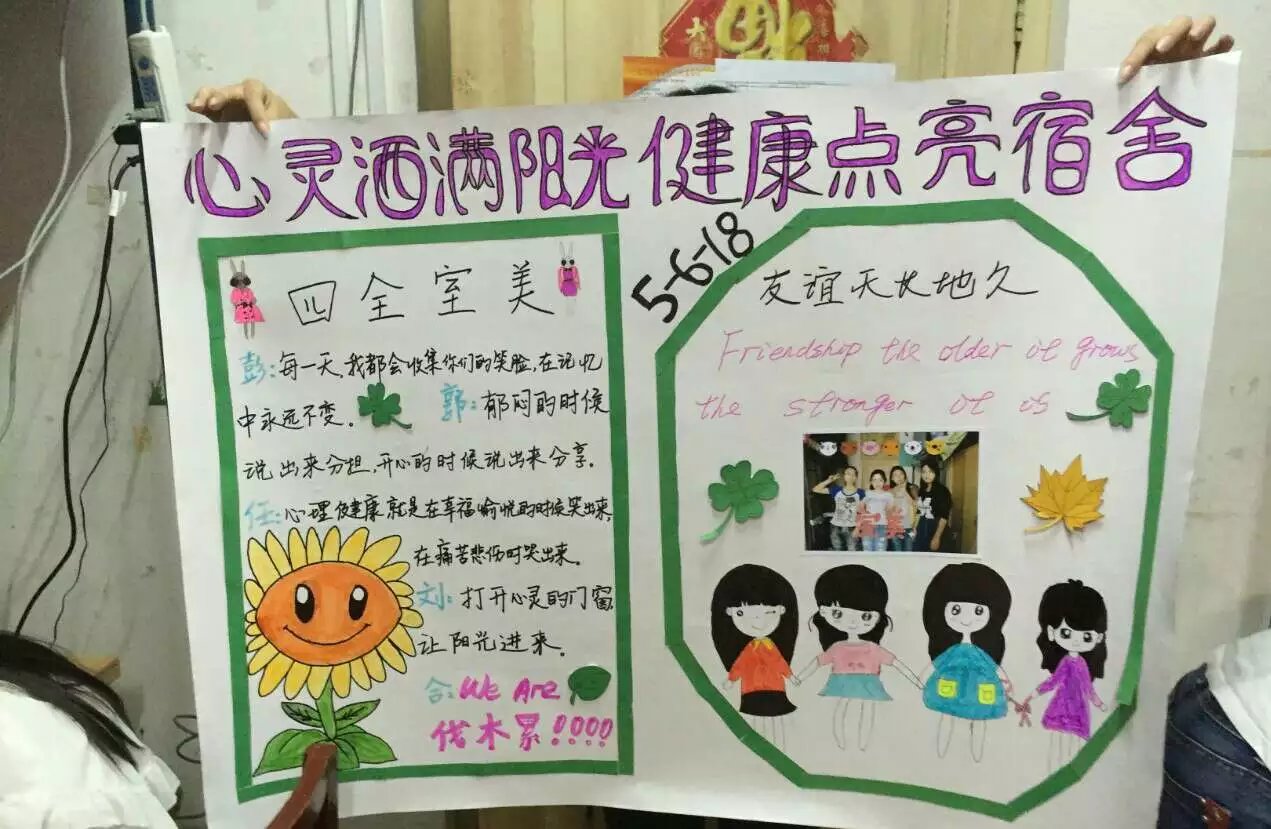 心灵洒满阳光 健康点亮宿舍
四全室美
彭：每一天，我都会收集你们的笑脸，在记忆
中永远不变。
郭：郁闷的时候
说出来分担，开心的时候说出来分享。
任：心理健康就是在幸福愉悦的时候笑出来，
在痛苦悲伤时哭出来。
刘：打开心灵的门窗，
让阳光进来。
合：We Are
伐木累！！！！
5-6-18
友谊天长地久
Friendship the older it grows
the stronger it is
室美
福